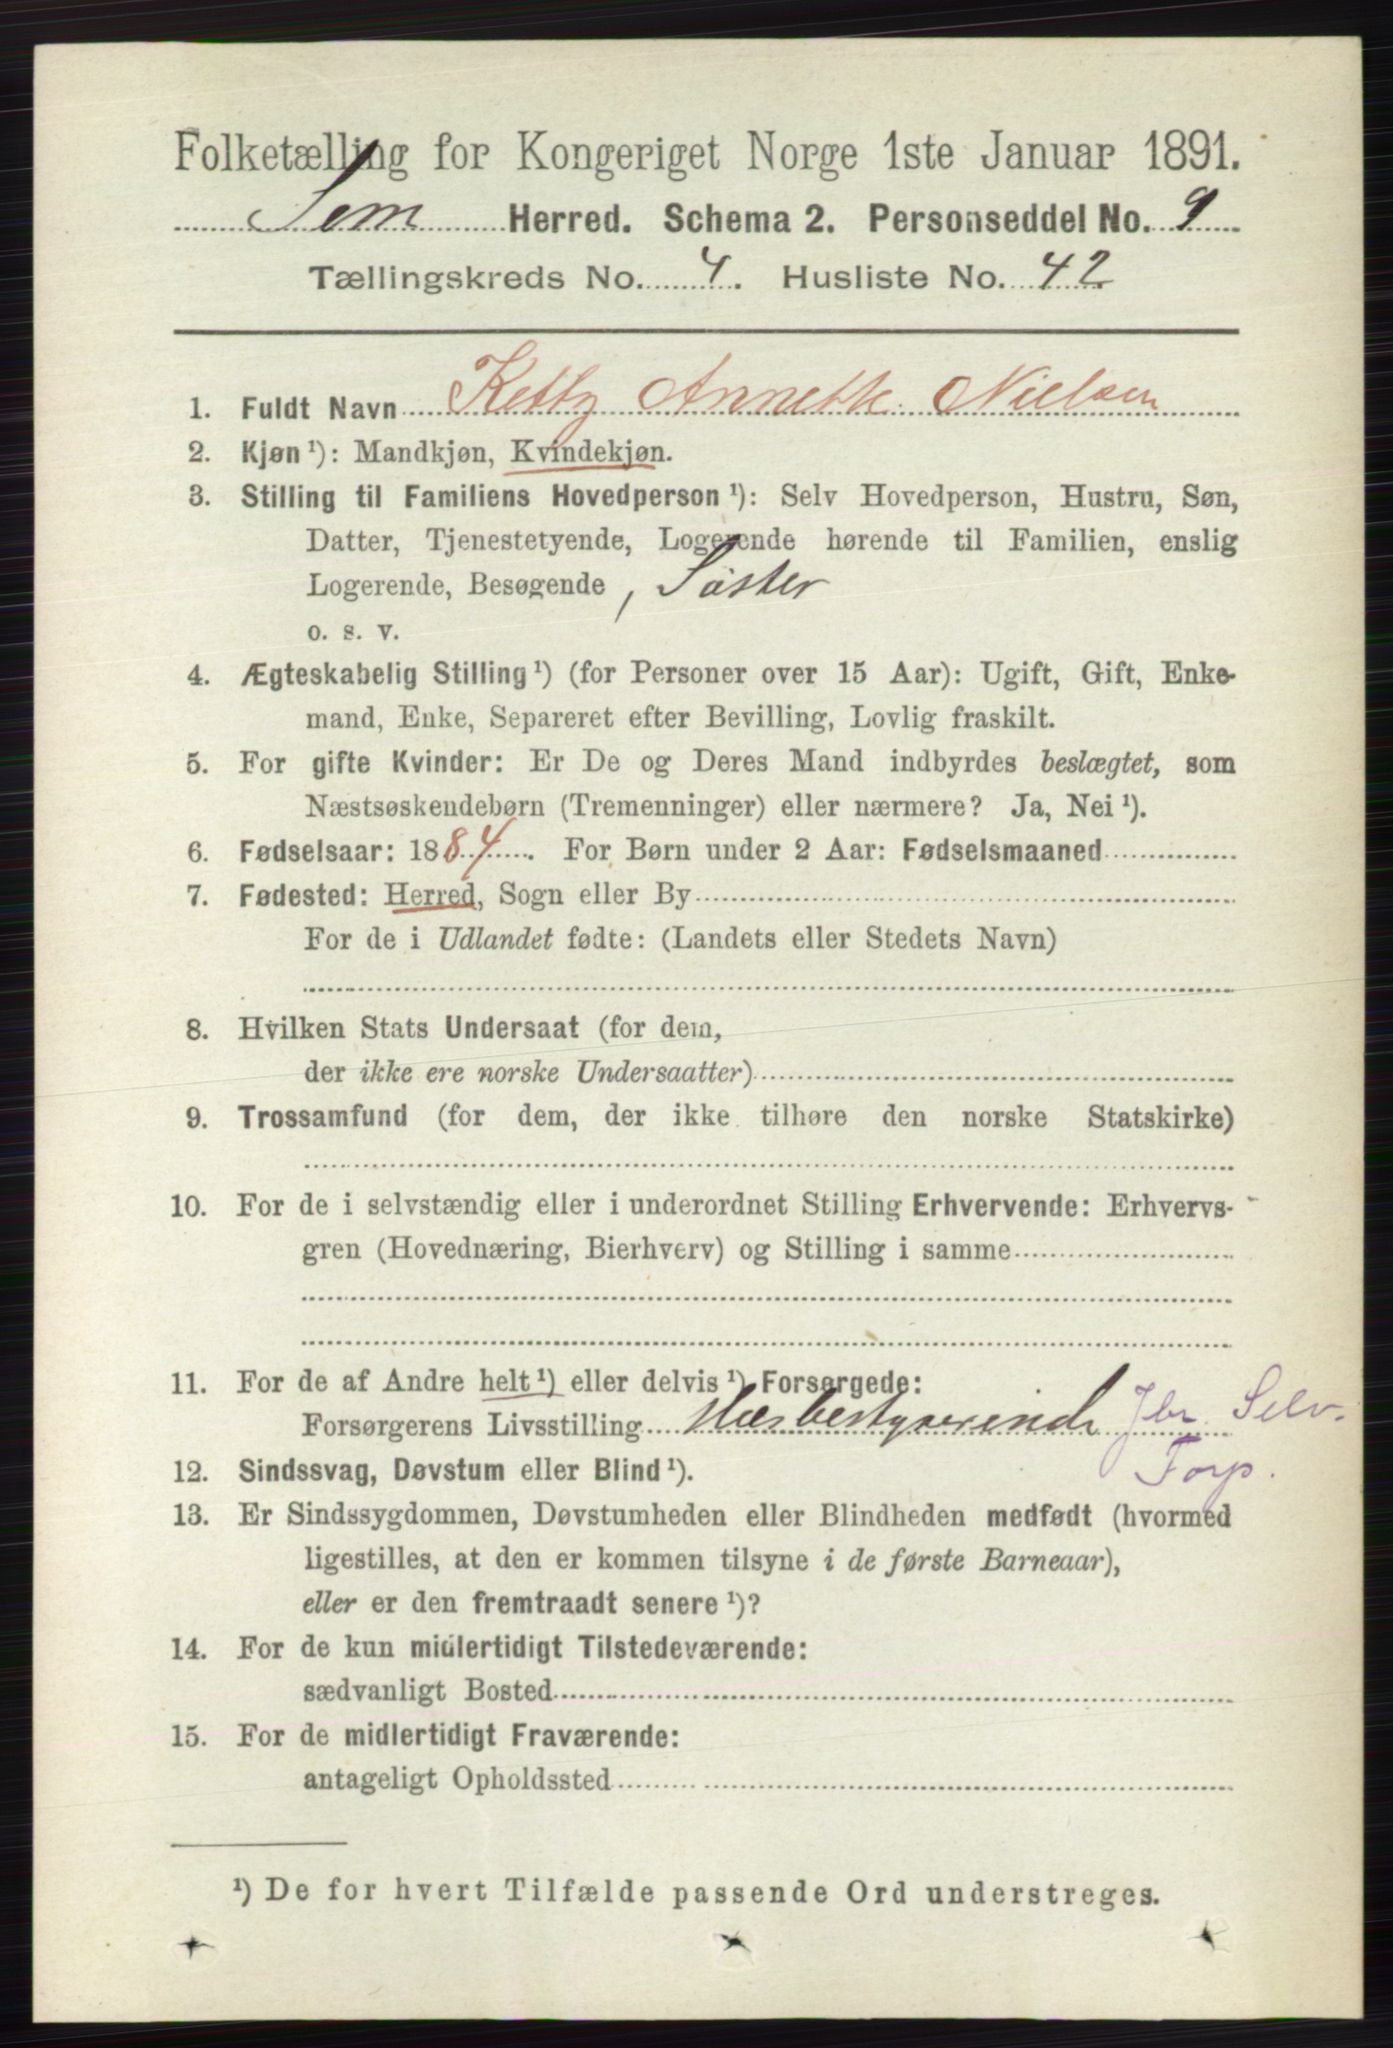 Folketælling for Kongeriget Norge 1ste Januar 1891.
Sem Herred. Schema 2. Personseddel No. 9
Tællingskreds No. 4. Husliste No. 42
1. Fuldt Navn Ketty Annette Nielsen
2. Kjøn ¹): Mandkjøn, Kvindekjøn.
3. Stilling til Familiens Hovedperson ¹): Selv Hovedperson, Hustru, Søn,
Datter, Tjenestetyende, Logerende hørende til Familien, enslig
Logerende, Besøgende , Søster
o. s. v.
4. Ægteskabelig Stilling ¹) (for Personer over 15 Aar): Ugift, Gift, Enke-
mand, Enke, Separeret efter Bevilling, Lovlig fraskilt.
5. For gifte Kvinder: Er De og Deres Mand indbyrdes beslægtet, som
Næstsøskendebørn (Tremenninger) eller nærmere? Ja, Nei ¹).
6. Fødselsaar: 1884. For Børn under 2 Aar: Fødselsmaaned
7. Fødested: Herred, Sogn eller By
For de i Udlandet fødte: (Landets eller Stedets Navn)
8. Hvilken Stats Undersaat (for dem,
der ikke ere norske Undersaatter)
9. Trossamfund (for dem, der ikke tilhøre den norske Statskirke)
10. For de i selvstændig eller i underordnet Stilling Erhvervende: Erhvervs-
gren (Hovednæring, Bierhverv) og Stilling i samme
11. For de af Andre helt ¹) eller delvis ¹) Forsørgede:
Forsørgerens Livsstilling Husbestyrerinde Jbr. Selv.
Forp.
12. Sindssvag, Døvstum eller Blind ¹).
13. Er Sindssygdommen, Døvstumheden eller Blindheden medfødt (hvormed
ligestilles, at den er kommen tilsyne i de første Barneaar),
eller er den fremtraadt senere ¹)?
14. For de kun midlertidigt Tilstedeværende:
sædvanligt Bosted
15. For de midlertidigt Fraværende:
antageligt Opholdssted
¹) De for hvert Tilfælde passende Ord understreges.